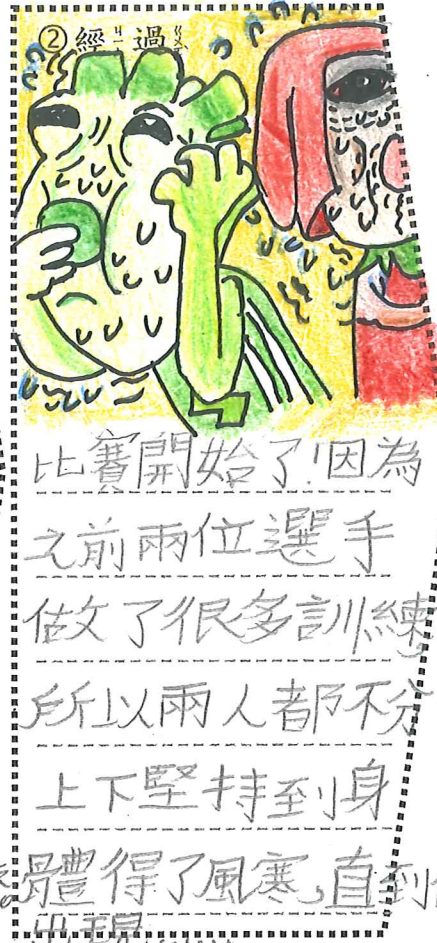 ②經過
比賽開始了!因為
之前兩位選手
做了很多訓練,
所以兩人都不分
上下堅持到身
體得了風寒,直到
出現